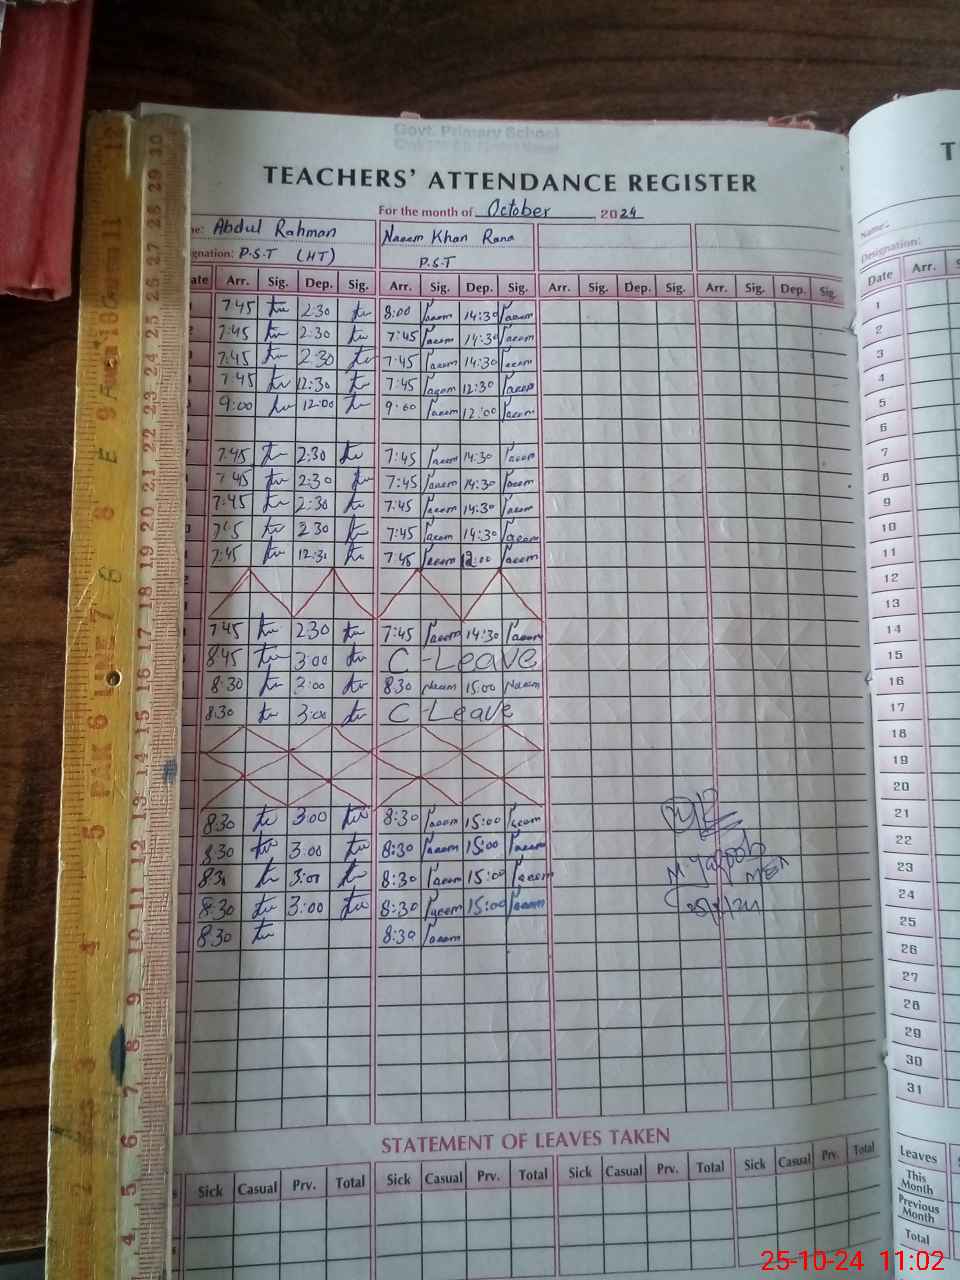 Govt. Primary School
TEACHERS' ATTENDANCE REGISTER
For the month of October 2024
Abdul Rahman Naeem Khan Rana
gnation: P.S.T (HT) P.S.T
ate Arr. Sig. Dep. Sig. Arr. Sig. Dep. Sig. Arr. Sig. Dep. Sig. Arr. Sig. Dep. Sig.
7:45 2:30 8:00 Naeem 14:30 Naeem
7:45 2:30 7:45 Naeem 14:30 Naeem
7:45 2:30 7:45 Naeem 14:30 Naeem
7:45 12:30 7:45 Naeem 12:30 Naeem
9:00 12:00 9:00 Naeem 12:00 Naeem
7:45 2:30 7:45 Naeem 14:30 Naeem
7:45 2:30 7:45 Naeem 14:30 Naeem
7:45 2:30 7:45 Naeem 14:30 Naeem
2:30 7:45 Naeem 14:30 Naeem
7:45 12:30 7:45 Naeem Naeem
7:45 230 7:45 Naeem 14:30 Naeem
8:45 3:00 C-Leave
8:30 8:30 Naeem 15:00 Naeem
8:30 3:00 C-Leave
8:30 3:00 8:30 Naeem 15:00 Naeem
8:30 3:00 8:30 Naeem 15:00 Naeem
3:00 8:30 Naeem 15:00 Naeem
8:30 3:00 8:30 Naeem 15:00 Naeem
8:30 8:30 Naeem
M. Yaqoob
MEA
STATEMENT OF LEAVES TAKEN
Sick Casual Prv. Total Sick Casual Prv. Total Sick Casual Prv. Total Sick Casual Prv. Total
T
Name:
Designation:
Date Arr.
1
2
3
4
5
6
7
8
9
10
11
12
13
14
15
16
17
18
19
20
21
22
23
24
25
26
27
28
29
30
31
Leaves
This Month
Previous Month
Total
25-10-24 11:02